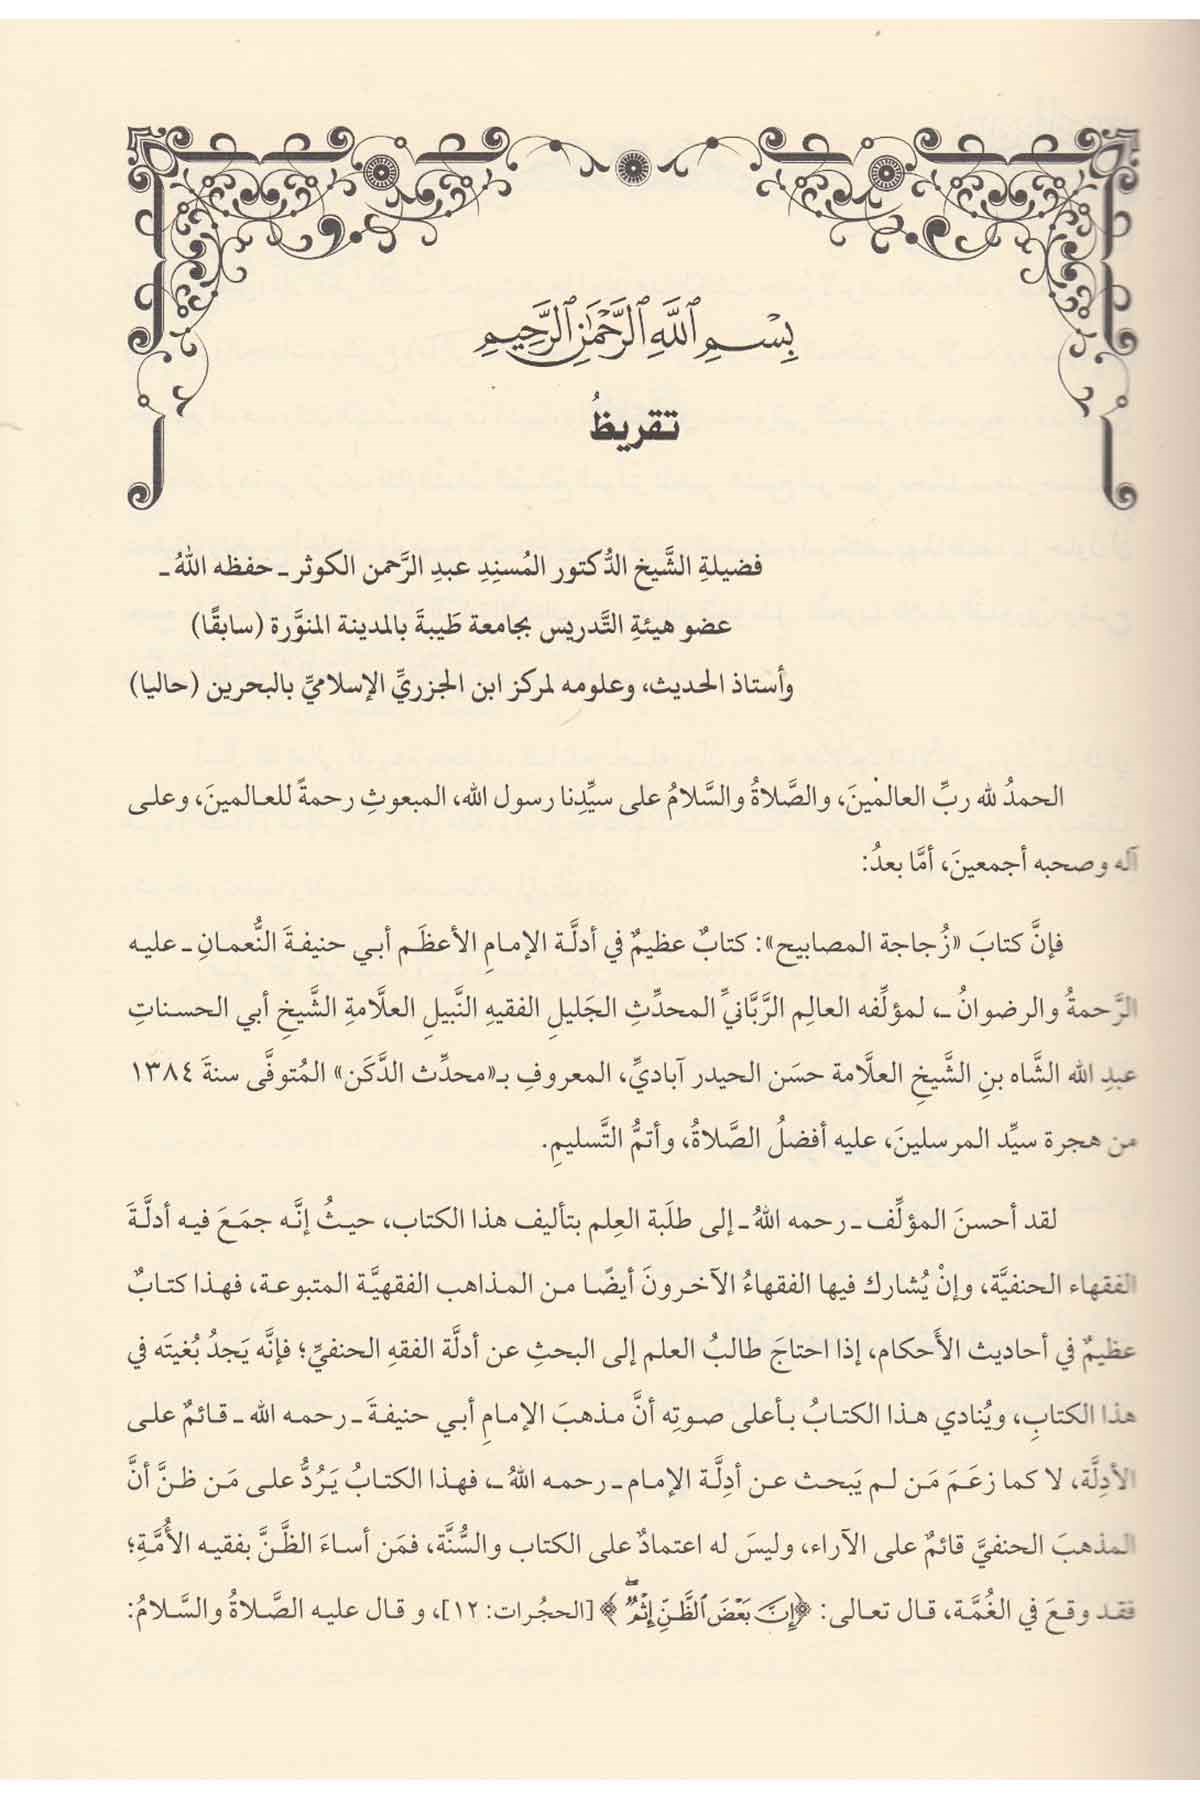 بِسْمِ ٱللَّهِ ٱلرَّحْمَٰنِ ٱلرَّحِيمِ
تقريظُ
فضيلةِ الشَّيخ الدُّكتور المُسنِدِ عبدِ الرَّحمن الكوثر ـ حفظه اللهُ ـ
عضو هيئةِ التَّدريس بجامعة طَيبةَ بالمدينة المنوَّرة (سابقًا)
وأستاذ الحديث، وعلومه لمركز ابن الجزريِّ الإسلاميِّ بالبحرين (حاليا)
الحمدُ لله ربِّ العالمْينَ، والصَّلاةُ والسَّلامُ على سيِّدِنا رسول الله، المبعوثِ رحمةً للعالمينَ، وعلى
آله وصحبه أجمعينَ، أمَّا بعدُ:
فإنَّ كتابَ «زُجاجة المصابيح»: كتابٌ عظيمٌ في أدلَّة الإمامِ الأعظَم أبي حنيفةَ النُّعمانِ ـ عليه
الرَّحمةُ والرضوانُ ـ، لمؤلِّفه العالِم الرَّبَّانيِّ المحدِّثِ الجَليلِ الفقيهِ النَّبيلِ العلَّامةِ الشَّيخِ أبي الحسناتِ
عبدِ الله الشَّاه بنِ الشَّيخِ العلَّامة حسَن الحيدر آباديِّ، المعروفِ بـ«محدِّث الدَّكَن» المُتوفَّى سنةَ ١٣٨٤
من هجرة سيِّد المرسلينَ، عليه أفضلُ الصَّلاةُ، وأتمُّ التَّسليمِ.
لقد أحسنَ المؤلِّف ـ رحمه اللهُ ـ إلى طلَبة العِلم بتأليف هذا الكتاب، حيثُ إنَّه جمَعَ فيه أدلَّةَ
الفقهاء الحنفيَّة، وإنْ يُشارك فيها الفقهاءُ الآخرونَ أيضًا من المذاهب الفقهيَّة المتبوعة، فهذا كتابٌ
عظيمٌ في أحاديث الأَحكام، إذا احتاجَ طالبُ العلم إلى البحثِ عن أدلَّة الفقهِ الحنفيِّ؛ فإنَّه يَجدُ بُغيتَه في
هذا الكتابِ، ويُنادي هذا الكتابُ بأعلى صوتِه أنَّ مذهبَ الإمامِ أبي حنيفةَ ـ رحمه الله ـ قائمٌ على
الأدِلَّة، لا كما زعَمَ مَن لم يَبحث عن أدِلَّة الإمام ـ رحمه اللهُ ـ، فهذا الكتابُ يَرُدُّ على مَن ظنَّ أنَّ
المذهبَ الحنفيَّ قائمٌ على الآراء، وليسَ له اعتمادٌ على الكتاب والسُّنَّة، فمَن أساءَ الظَّنَّ بفقيه الأُمَّةِ؛
فقد وقعَ في الغُمَّة، قال تعالى: ﴿إِنَّ بَعْضَ ٱلظَّنِّ إِثْمٌ ۖ﴾ [الحجُرات: ١٢]، و قال عليه الصَّلاةُ والسَّلامُ: